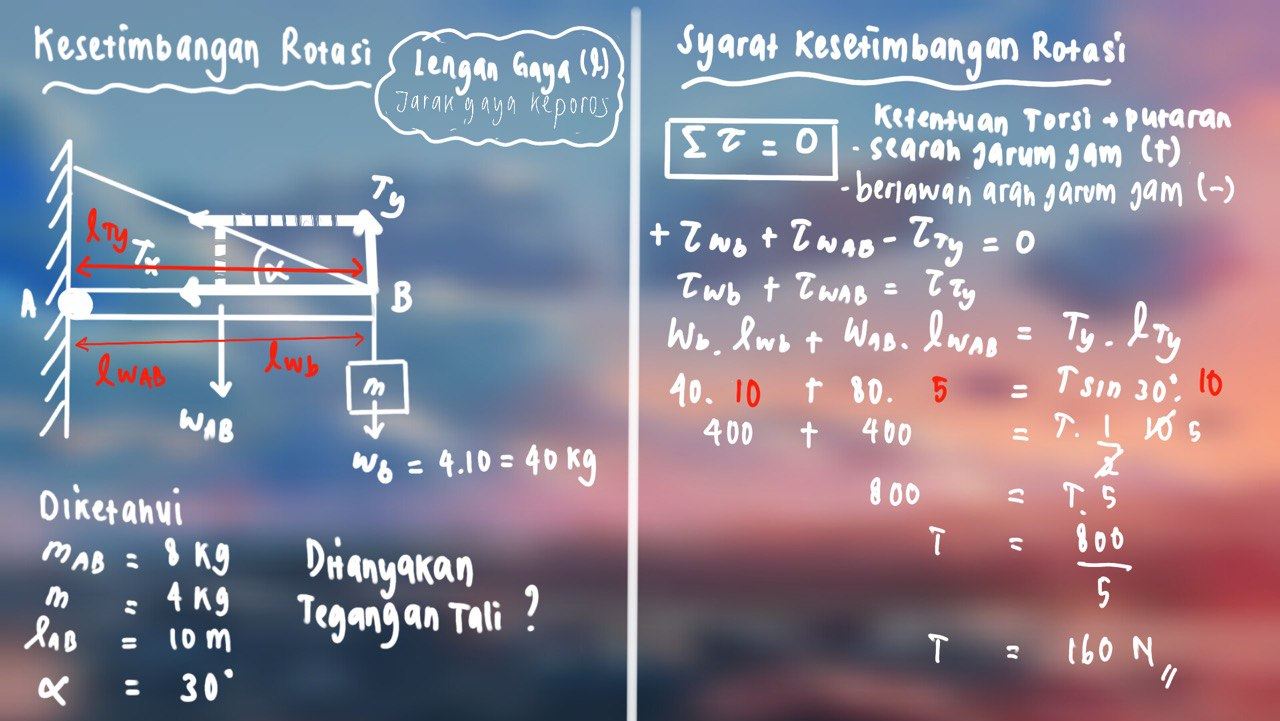 Kesetimbangan Rotasi
Lengan Gaya (l)
Jarak gaya keporos
Ty
lTy
Tx
α
A
B
lWAB
lWb
m
WAB
Wb = 4.10 = 40 Kg
Diketahui
mAB = 8 Kg
m = 4 Kg
lAB = 10 m
α = 30°
Ditanyakan
Tegangan Tali ?
Syarat Kesetimbangan Rotasi
Στ = 0
Ketentuan Torsi + putaran
- searah jarum jam (+)
- berlawan arah jarum jam (-)
+ τWb + τWAB - τTy = 0
τWb + τWAB = τTy
Wb . lWb + WAB . lWAB = Ty . lTy
40. 10 + 80. 5 = T sin 30°. 10
400 + 400 = T. 1/2 10 5
800 = T. 5
T = 800/5
T = 160 N